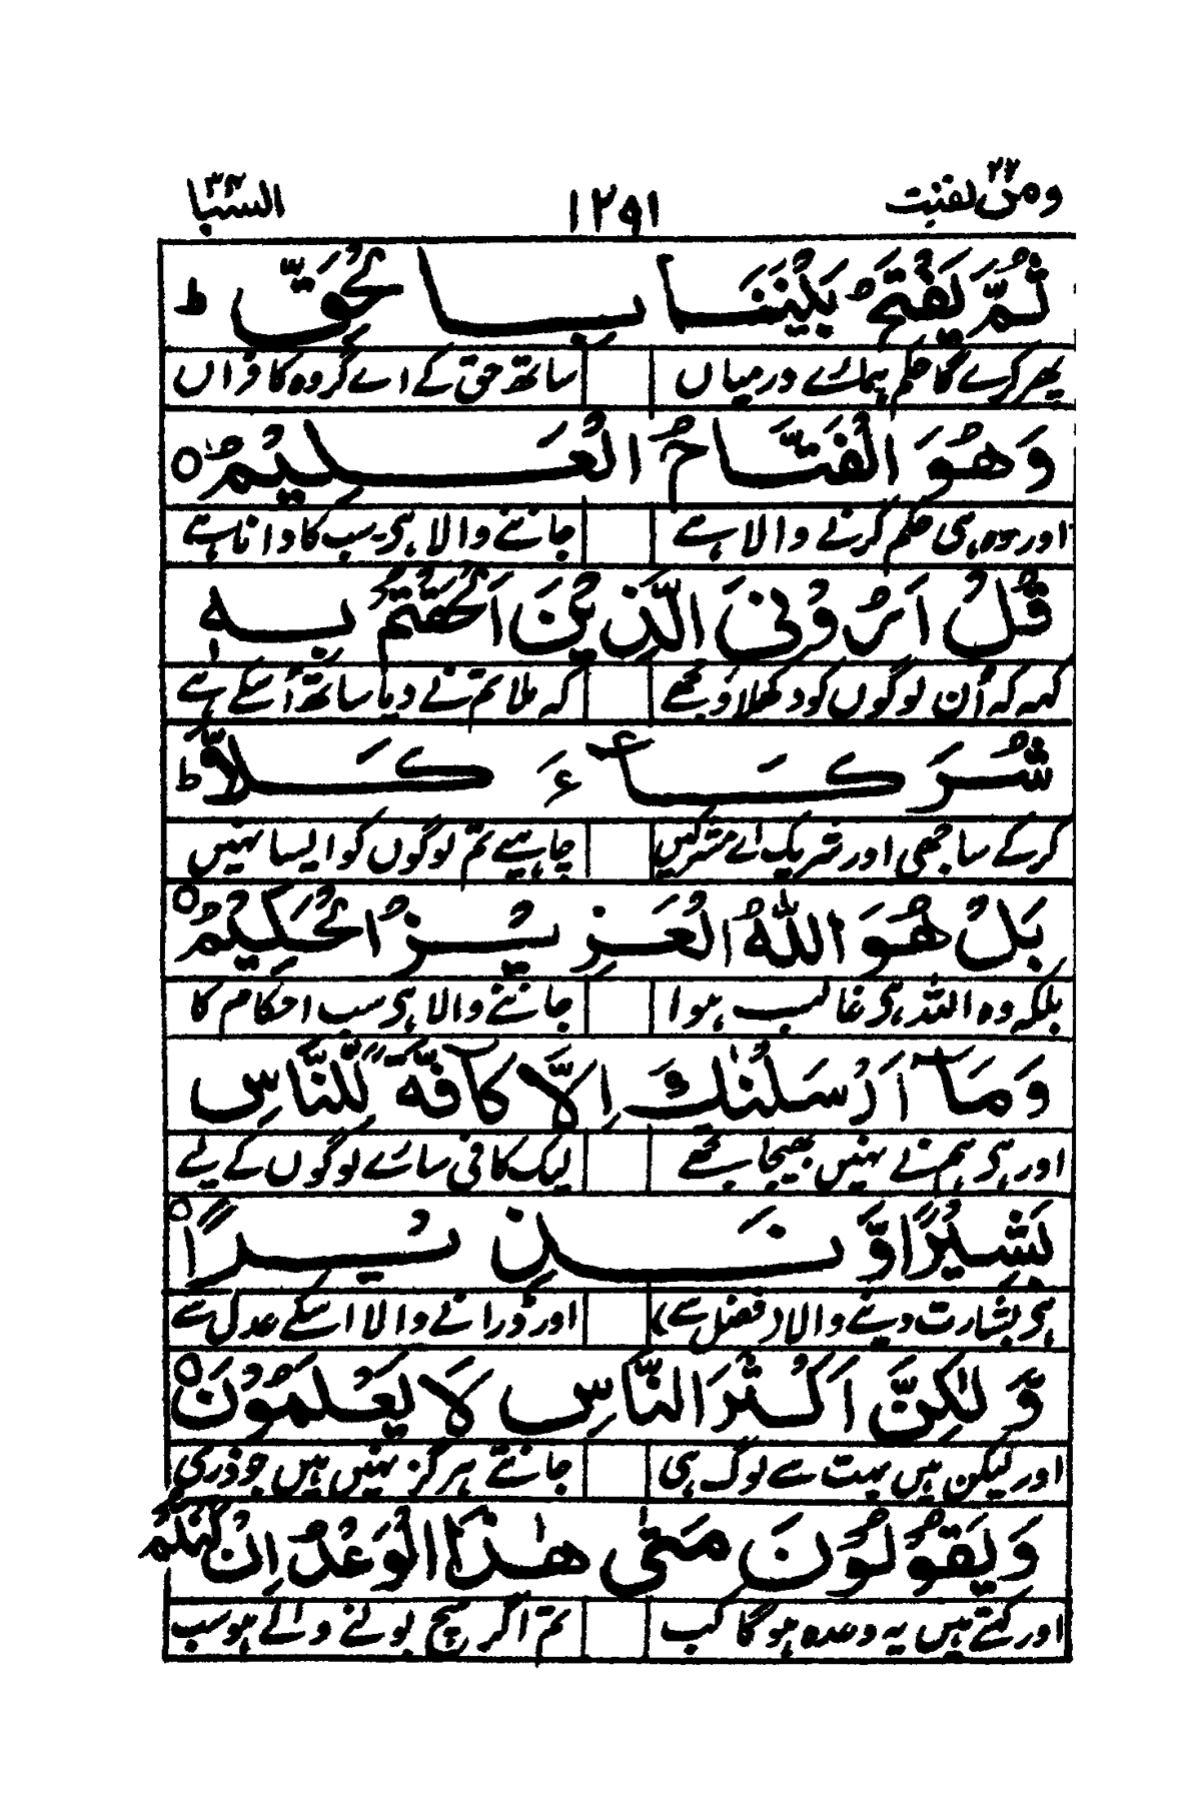 ومن یقنت ۲۲ ۱۲۹۱ السبا ۳۴
ثُمَّ يَفْتَحُ بَيْنَنَا بِالْحَقِّ ط
پھر کرے گا حکم ہمارے درمیاں ساتھ حق کے اے گروہ کا
وَهُوَ الْفَتَّاحُ الْعَلِيْمُ ○
اور وہ ہی حکم کرنے والا ہے جاننے والا ہی سب کا دانا ہے
قُلْ اَرُوْنِیَ الَّذِيْنَ اَلْحَقْتُمْ بِهٖ
کہہ کہ اُن لوگوں کو دکھلاؤ مجھے کہ ملا تم نے دیا ساتھ اُسکے ہے
شُرَكَآءَ كَلَّا ط
کرکے ساجھی اور شریک اے مشرکیں چاہیے تم لوگوں کو ایسا نہیں
بَلْ هُوَ اللّٰهُ الْعَزِيْزُ الْحَكِيْمُ ○
بلکہ وہ اللہ ہی غالب ہوا جاننے والا ہی سب احکام کا
وَمَآ اَرْسَلْنٰكَ اِلَّا كَآفَّةً لِّلنَّاسِ
اور ہی ہم نے نہیں بھیجا تجھے لیک کافی سارے لوگوں کے لئے
بَشِيْرًا وَّنَذِيْرًا ○
ہی بشارت دینے والا (فضل سے) اور ڈرانے والا اسکے عدل سے
وَّلٰكِنَّ اَكْثَرَ النَّاسِ لَا يَعْلَمُوْنَ ○
اور لیکن ہیں بہت سے لوگ ہی جانتے ہرگز نہیں ہیں جو ذری
وَيَقُوْلُوْنَ مَتٰى هٰذَا الْوَعْدُ اِنْ كُنْتُمْ
اور کہتے ہیں یہ وعدہ ہوگا کب تم اگر سچ بولنے والے ہو سب